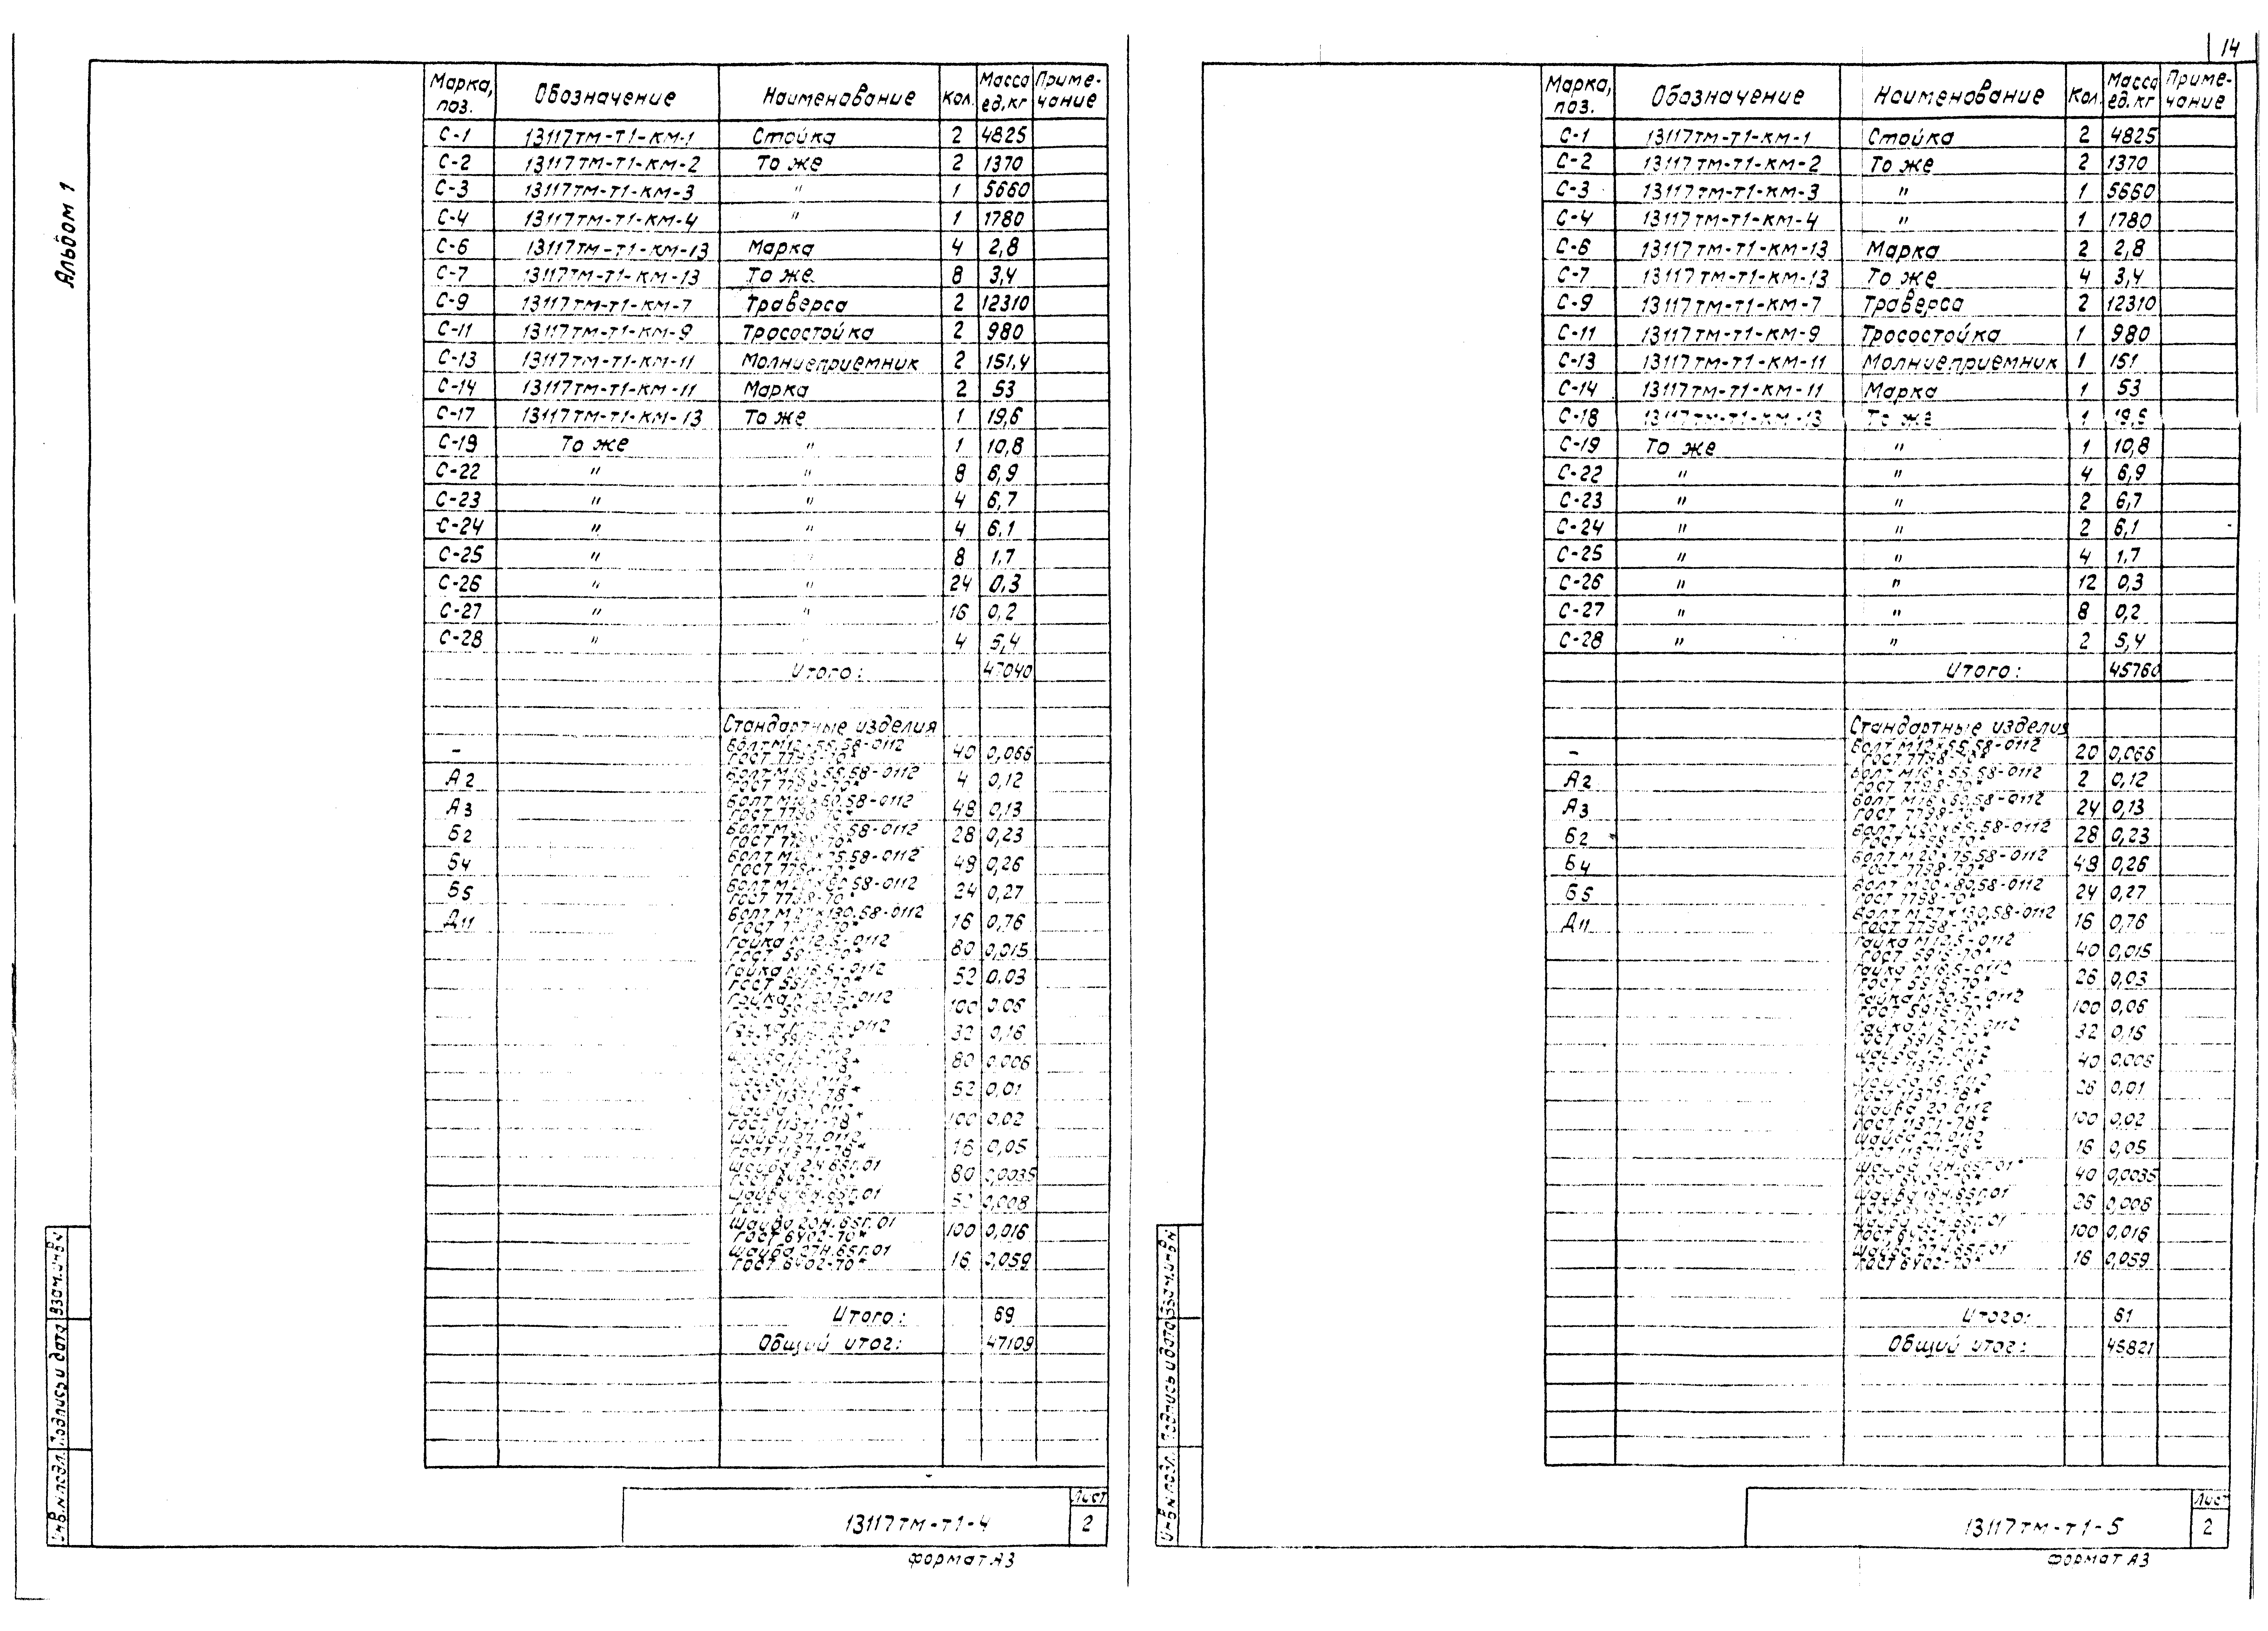 14
Альбом 1
Марка, поз. Обозначение Наименование Кол. Масса ед.кг Примечание
С-1 13117тм-т1-км-1 Стойка 2 4825
С-2 13117тм-т1-км-2 То же 2 1370
С-3 13117тм-т1-км-3 " 1 5660
С-4 13117тм-т1-км-4 " 1 1780
С-6 13117тм-т1-км-13 Марка 4 2,8
С-7 13117тм-т1-км-13 То же 8 3,4
С-9 13117тм-т1-км-7 Траверса 2 12310
С-11 13117тм-т1-км-9 Тросостойка 2 980
С-13 13117тм-т1-км-11 Молниеприемник 2 151,4
С-14 13117тм-т1-км-11 Марка 2 53
С-17 13117тм-т1-км-13 То же 1 19,6
С-19 То же " 1 10,8
С-22 " " 8 6,9
С-23 " " 4 6,7
С-24 " " 4 6,1
С-25 " " 8 1,7
С-26 " " 24 0,3
С-27 " " 16 0,2
С-28 " " 4 5,4
Итого: 47040
Стандартные изделия
- Болт М12×55.58-0112 ГОСТ 7798-70* 40 0,066
А2 Болт М16×55.58-0112 ГОСТ 7798-70* 4 0,12
А3 Болт М16×60.58-0112 ГОСТ 7798-70* 48 0,13
Б2 Болт М20×65.58-0112 ГОСТ 7798-70* 28 0,23
Б4 Болт М20×75.58-0112 ГОСТ 7798-70* 48 0,26
Б5 Болт М20×80.58-0112 ГОСТ 7798-70* 24 0,27
Д11 Болт М27×130.58-0112 ГОСТ 7798-70* 16 0,76
Гайка М12.5-0112 ГОСТ 5915-70* 80 0,015
Гайка М16.5-0112 ГОСТ 5915-70* 52 0,03
Гайка М20.5-0112 ГОСТ 5915-70* 100 0,06
Гайка М27.5-0112 ГОСТ 5915-70* 32 0,16
Шайба 12.0112 ГОСТ 11371-78* 80 0,006
Шайба 16.0112 ГОСТ 11371-78* 52 0,01
Шайба 20.0112 ГОСТ 11371-78* 100 0,02
Шайба 27.0112 ГОСТ 11371-78* 16 0,05
Шайба 12Н.65Г.01 ГОСТ 6402-70* 80 0,0035
Шайба 16Н.65Г.01 ГОСТ 6402-70* 52 0,008
Шайба 20Н.65Г.01 ГОСТ 6402-70* 100 0,016
Шайба 27Н.65Г.01 ГОСТ 6402-70* 16 0,059
Итого: 69
Общий итог: 47109
Инв.№подл. Подпись и дата Взам.инв№
13117тм-т1-4 Лист 2
Формат А3
Марка, поз. Обозначение Наименование Кол. Масса ед.кг Примечание
С-1 13117тм-т1-км-1 Стойка 2 4825
С-2 13117тм-т1-км-2 То же 2 1370
С-3 13117тм-т1-км-3 " 1 5660
С-4 13117тм-т1-км-4 " 1 1780
С-6 13117тм-т1-км-13 Марка 2 2,8
С-7 13117тм-т1-км-13 То же 4 3,4
С-9 13117тм-т1-км-7 Траверса 2 12310
С-11 13117тм-т1-км-9 Тросостойка 1 980
С-13 13117тм-т1-км-11 Молниеприемник 1 151
С-14 13117тм-т1-км-11 Марка 1 53
С-18 13117тм-т1-км-13 То же 1 19,6
С-19 То же " 1 10,8
С-22 " " 4 6,9
С-23 " " 2 6,7
С-24 " " 2 6,1
С-25 " " 4 1,7
С-26 " " 12 0,3
С-27 " " 8 0,2
С-28 " " 2 5,4
Итого: 45760
Стандартные изделия
- Болт М12×55.58-0112 ГОСТ 7798-70* 20 0,066
А2 Болт М16×55.58-0112 ГОСТ 7798-70* 2 0,12
А3 Болт М16×60.58-0112 ГОСТ 7798-70* 24 0,13
Б2 Болт М20×65.58-0112 ГОСТ 7798-70* 28 0,23
Б4 Болт М20×75.58-0112 ГОСТ 7798-70* 48 0,26
Б5 Болт М20×80.58-0112 ГОСТ 7798-70* 24 0,27
Д11 Болт М27×130.58-0112 ГОСТ 7798-70* 16 0,76
Гайка М12.5-0112 ГОСТ 5915-70* 40 0,015
Гайка М16.5-0112 ГОСТ 5915-70* 26 0,03
Гайка М20.5-0112 ГОСТ 5915-70* 100 0,06
Гайка М27.5-0112 ГОСТ 5915-70* 32 0,16
Шайба 12.0112 ГОСТ 11371-78* 40 0,006
Шайба 16.0112 ГОСТ 11371-78* 26 0,01
Шайба 20.0112 ГОСТ 11371-78* 100 0,02
Шайба 27.0112 ГОСТ 11371-78* 16 0,05
Шайба 12Н.65Г.01 ГОСТ 6402-70* 40 0,0035
Шайба 16Н.65Г.01 ГОСТ 6402-70* 26 0,008
Шайба 20Н.65Г.01 ГОСТ 6402-70* 100 0,016
Шайба 27Н.65Г.01 ГОСТ 6402-70* 16 0,059
Итого: 61
Общий итог: 45821
Инв.№подл. Подпись и дата Взам.инв№
13117тм-т1-5 Лист 2
Формат А3